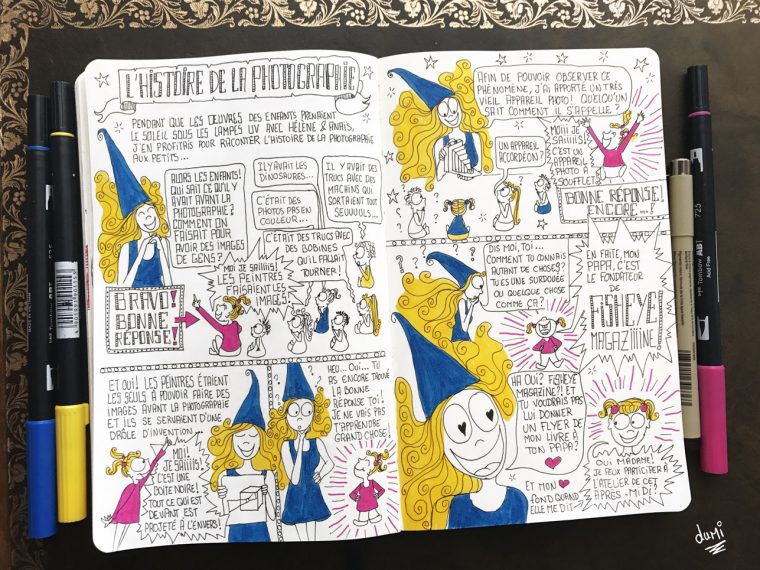 L'HISTOIRE DE LA PHOTOGRAPHIE
PENDANT QUE LES ŒUVRES DES ENFANTS PRENAIENT
LE SOLEIL SOUS LES LAMPES UV AVEC HÉLÈNE & ANAÏS,
J'EN PROFITAIS POUR RACONTER L'HISTOIRE DE LA PHOTOGRAPHIE
AUX PETITS...
ALORS LES ENFANTS!
QUI SAIT CE QU'IL Y
AVAIT AVANT LA
PHOTOGRAPHIE?
COMMENT ON
FAISAIT POUR
AVOIR DES IMAGES
DE GENS?
IL Y AVAIT LES
DINOSAURES...
C'ÉTAIT DES
PHOTOS PAS EN
COULEUR...
IL Y AVAIT DES
TRUCS AVEC DES
MACHINS QUI
SORTAIENT TOUT
SEUUULS...
C'ÉTAIT DES TRUCS AVEC
DES BOBINES
QU'IL FALLAIT
TOURNER!
MOI JE SAIIIIS!
LES PEINTRES
FAISAIENT LES
IMAGES!
BRAVO!
BONNE
RÉPONSE!
ET OUI! LES PEINTRES ÉTAIENT
LES SEULS À POUVOIR FAIRE DES
IMAGES AVANT LA PHOTOGRAPHIE
ET ILS SE SERVAIENT D'UNE
DRÔLE D'INVENTION...
MOI!
JE SAIIIIS!
C'EST UNE
BOITE NOIRE!
TOUT CE QUI EST
DEVANT EST
PROJETÉ À L'ENVERS!
HEU... OUI... TU
AS ENCORE TROUVÉ
LA BONNE
RÉPONSE TOI!
JE NE VAIS PAS
T'APPRENDRE
GRAND CHOSE!
AFIN DE POUVOIR OBSERVER CE
PHÉNOMÈNE, J'AI APPORTÉ UN TRÈS
VIEIL APPAREIL PHOTO! QUELQU'UN
SAIT COMMENT IL S'APPELLE?
UN APPAREIL
ACCORDÉON?
MOIII JE
SAIIIIS!
C'EST UN
APPAREIL
PHOTO À
SOUFFLET!
BONNE RÉPONSE!
ENCORE...!
DIS MOI, TOI...
COMMENT TU CONNAIS
AUTANT DE CHOSES?
TU ES UNE SURDOUÉE
OU QUELQUE CHOSE
COMME ÇA?
EN FAITE, MON
PAPA, C'EST
LE FONDATEUR
DE
FISHEYE
MAGAZIIIINE!
HA OUI? FISHEYE
MAGAZINE?! ET
TU VOUDRAIS PAS
LUI DONNER
UN FLYER DE
MON LIVRE À
TON PAPA?
ET MON
FOND QUAND
ELLE ME DIT...
OUI MADAME!
JE PEUX PARTICIPER À
L'ATELIER DE CET
APRÈS-MIDI?
dumi